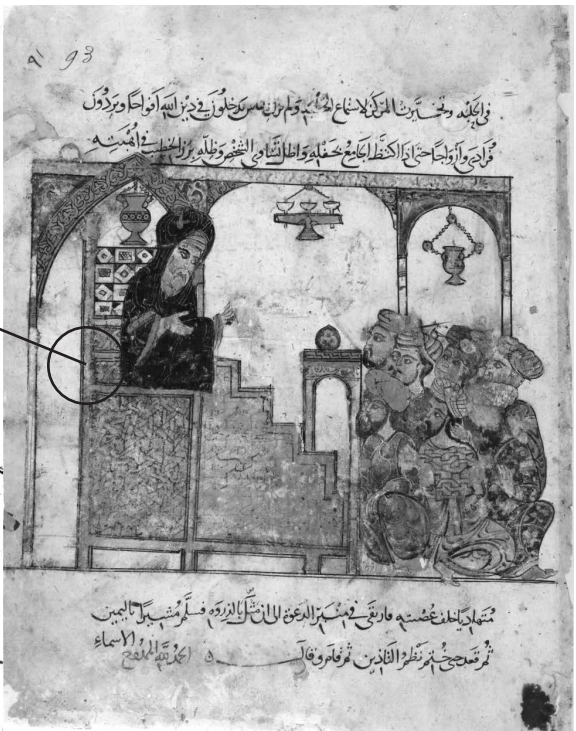 ٩١ 93
في الحلبه وتخيرت المركز لاستماع الخطبه ولم يزل الناس يدخلون في دين الله افواجا ويردون
فرادى وازواجا حتى اذا اكتظ الجامع بحفله واظل تساوي الشخص وظله برز الخطيب في اهبته
متهاديا خلف عصبته فارتقى في منبر الدعوة الى ان مثل بالذروه فسلم مشيرا باليمين
ثم قعد حتى ختم نظم التاذين ثم قام وقال الحمد لله الممدوح الاسماء